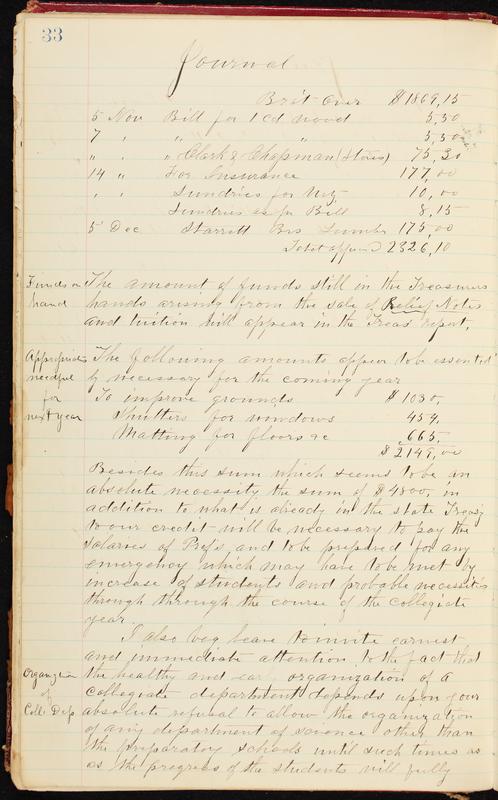 33
Journal
Brot over $1809,15
5 Nov Bill for 1 cd wood 5,50
7 " " " 5,50
" " " Clark & Chapman (Stoves) 75,30
14 " For Insurance 177,00
" " Sundries for 10,00
Sundries as per Bill 8,15
5 Dec Starrett Bros Lumber 175,00
Total 2326,10
Funds on
hand
The amount of funds still in the Treasurers
hands arising from the sale of Relief Notes
and tuition will appear in the Treas' report,
needful
for
next year
The following amounts appear to be essential
ly necessary for the coming year
To improve grounds $1030,
Shutters for windows 454,
Matting for floors &c 665,
$2149,00
Besides this sum which seems to be an
absolute necessity the sum of $4800, in
addition to what is already in the state Treasy
to our credit will be necessary to pay the
salaries of Profs and to be prepared for any
emergency which may have to be met by
increase of students and probable necessities
through through the course of the collegiate
year.
I also beg leave to invite earnest
and immediate attention to the fact that
Organization
of
Coll. Dep
the healthy and organization of a
collegiate department depends upon your
absolute refusal to allow the organization
of any department of science other than
the preparatory schools until such times as
as the progress of the students will fully